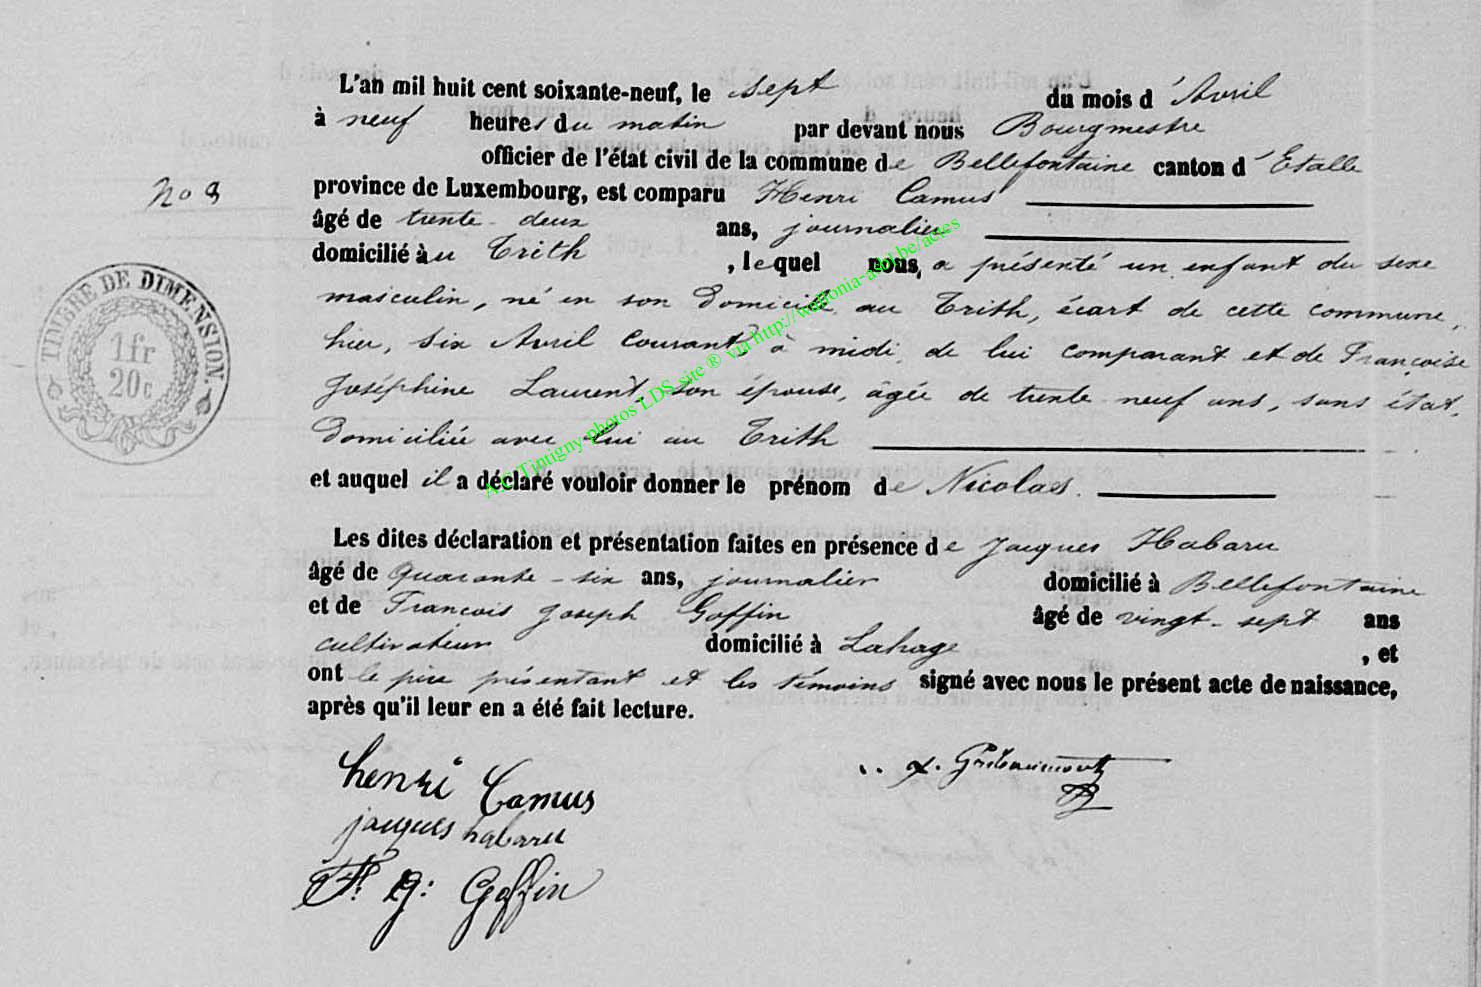 L'an mil huit cent soixante-neuf, le sept du mois d'Avril
à neuf heures du matin par devant nous Bourgmestre
officier de l'état civil de la commune de Bellefontaine canton d'Etalle
No 9
province de Luxembourg, est comparu Henri Camus
âgé de trente-deux ans, journalier
domicilié au Trith, lequel nous, a présenté un enfant du sexe
masculin, né en son domicile au Trith, écart de cette commune,
hier, six Avril courant à midi, de lui comparant et de Françoise
Joséphine Laurent, son épouse, âgée de trente neuf ans, sans état,
domiciliée avec lui au Trith
et auquel il a déclaré vouloir donner le prénom de Nicolas.
Les dites déclaration et présentation faites en présence de Jacques Habaru
âgé de quarante-six ans, journalier domicilié à Bellefontaine
et de François Joseph Goffin âgé de vingt-sept ans
cultivateur domicilié à Lahage, et
ont le père présentant et les témoins signé avec nous le présent acte de naissance,
après qu'il leur en a été fait lecture.
henri Camus
jacques habaru
Goffin
TIMBRE DE DIMENSION.
1fr
20c
A.C. Tintigny photos LDS site ® via http://wallonia-asbl.be/actes